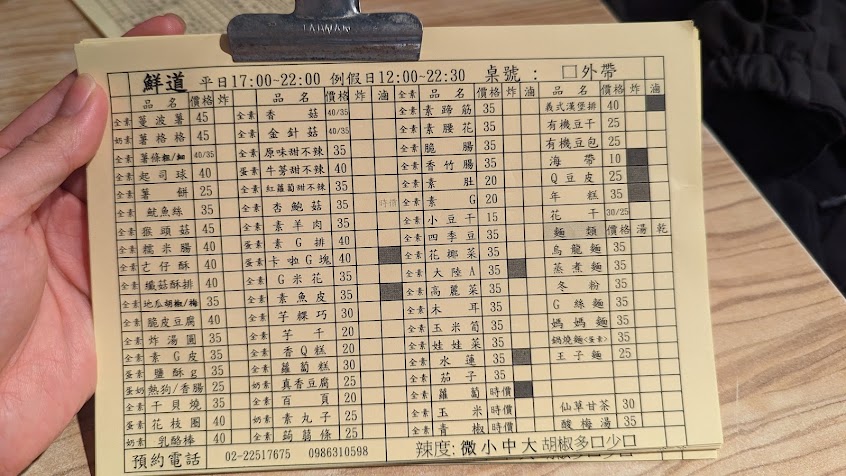 TAIWAN
鮮道 平日17:00~22:00 例假日12:00~22:30 桌號： □外帶
品名 價格 炸
全素 蔓波薯 45
奶素 薯格格 45
全素 薯條粗/細 40/35
全素 起司球 40
全素 薯餅 25
魷魚絲 35
全素 猴頭菇 45
全素 糯米腸 40
全素 七仔酥 40
全素 纖菇酥排 40
全素 地瓜胡椒/梅 35
全素 脆皮豆腐 40
全素 炸湯圓 35
全素 素G皮 35
蛋素 鹽酥g 35
蛋奶 熱狗/香腸 25
全素 干貝燒 35
全素 花枝圈 40
奶素 乳酪棒 40
品名 價格 炸 滷
全素 香菇 40/35
全素 金針菇 40/35
全素 原味甜不辣 35
蛋素 牛蒡甜不辣 40
全素 紅蘿蔔甜不辣 35
全素 杏鮑菇 35 時價
全素 素羊肉 35
蛋素 素G排 40
蛋素 卡啦G塊 40
全素 G米花 35
全素 素魚皮 35
全素 芋粿巧 30
全素 芋干 20
全素 香Q糕 20
全素 蘿蔔糕 30
奶素 真香豆腐 25
全素 百頁 20
奶素 素丸子 25
全素 蒟蒻條 25
全素 品名 價格 炸 滷
全素 素蹄筋 35
全素 素腰花 35
全素 脆腸 35
全素 香竹腸 35
全素 素肚 20
全素 素G 20
全素 小豆干 15
全素 四季豆 35
全素 花椰菜 35
全素 大陸A 35
全素 高麗菜 35
全素 木耳 35
全素 玉米筍 35
全素 娃娃菜 35
全素 水蓮 35
全素 茄子 35
全素 蘿蔔 時價
全素 玉米 時價
全素 青椒 時價
品名 價格 炸 滷
義式漢堡排 40
有機豆干 25
有機豆包 25
海帶 10
Q豆皮 25
年糕 35
花干 30/25
麵類 價格 湯 乾
烏龍麵 35
蒸煮麵 35
冬粉 35
G絲麵 35
媽媽麵 35
鍋燒麵<蛋素> 35
王子麵 25
仙草甘茶 30
酸梅湯 35
預約電話 02-22517675 0986310598 辣度：微小中大 胡椒多□少□